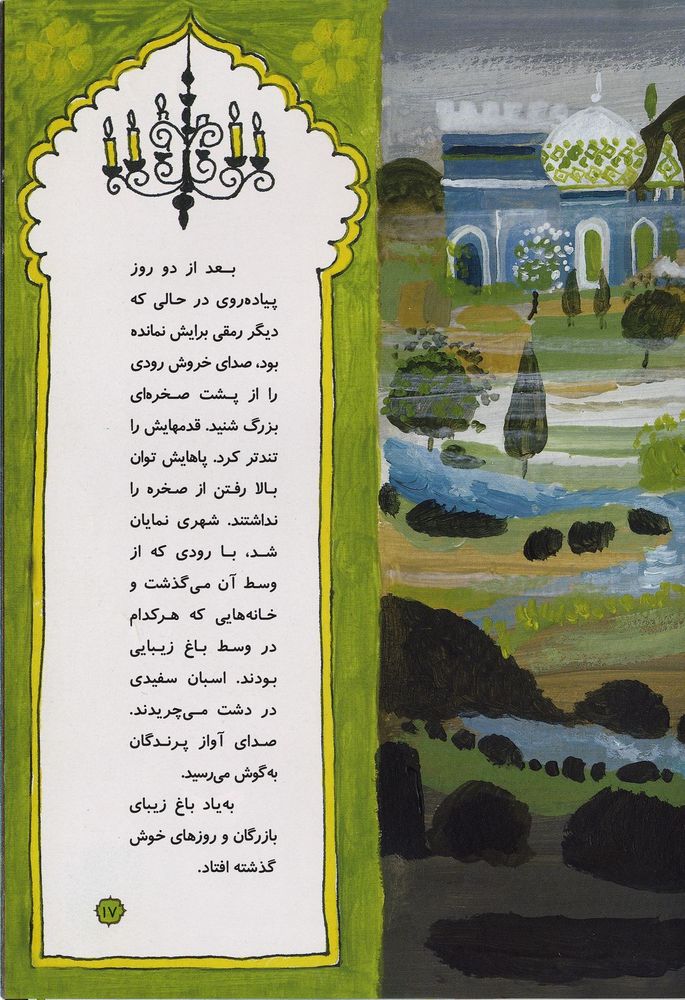 بعد از دو روز
پیاده‌روی در حالی که
دیگر رمقی برایش نمانده
بود، صدای خروش رودی
را از پشت صخره‌ای
بزرگ شنید. قدمهایش را
تندتر کرد. پاهایش توان
بالا رفتن از صخره را
نداشتند. شهری نمایان
شد، با رودی که از
وسط آن می‌گذشت و
خانه‌هایی که هرکدام
در وسط باغ زیبایی
بودند. اسبان سفیدی
در دشت می‌چریدند.
صدای آواز پرندگان
به‌گوش می‌رسید.
به‌یاد باغ زیبای
بازرگان و روزهای خوش
گذشته افتاد.
۱۷